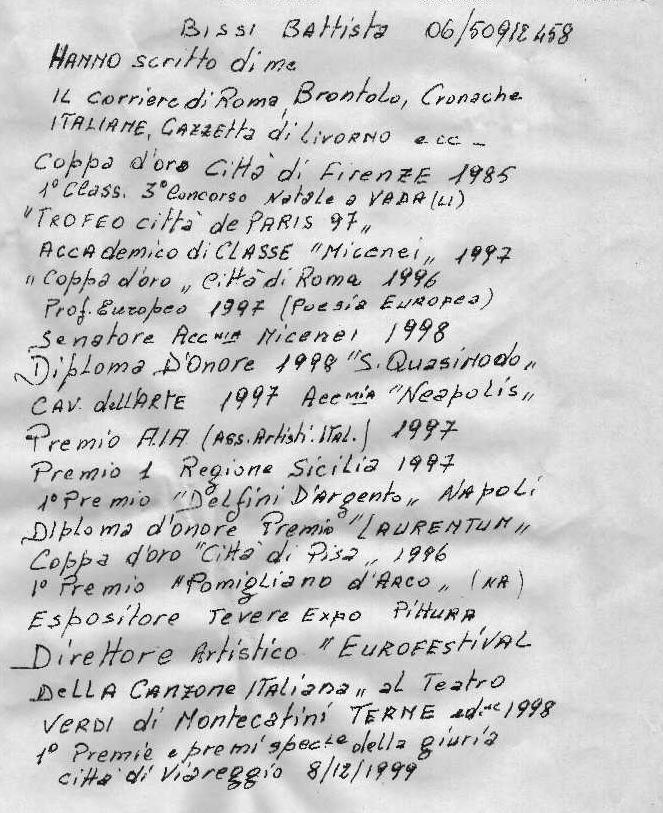 BISSI BAttista 06/50912458
HANNO scritto di me
IL corriere di Roma, Brontolo, Cronache
ITALIANE, GAZZEtta di LIVORNO ecc -
Coppa d'oro Città di FIRENZE 1985
1° Class. 3° Concorso Natale a VADA (LI)
"TROFEO città de PARIS 97"
ACCAdemico di CLASSE "Micenei" 1997
"Coppa d'oro" Città di Roma 1996
Prof. Europeo 1997 (Poesia EUROPEA)
Senatore Acc.MIA MICENEI 1998
DipLoma D'Onore 1998 "S. QuasiModo"
CAV. dell'ARTE 1997 Acc.MIA "Neapolis"
Premio A.I.A (Ass. Artisti. ITAL.) 1997
Premio 1 Regione Sicilia 1997
1° Premio "Delfini D'Argento" NAPOLi
DIploma d'onore Premio "LAURENTUM"
Coppa d'oro "Città di Pisa" 1996
1° Premio "Pomigliano d'ARCO" (NA)
Espositore Tevere Expo PittURA
Direttore Artistico "EUROFESTIVAL
DELLA CANZONE ITALIANA" al TEATRO
VERDI di Montecatini TERME ed.ne 1998
1° Premio e premi specle della giuria
città di Viareggio 8/12/1999